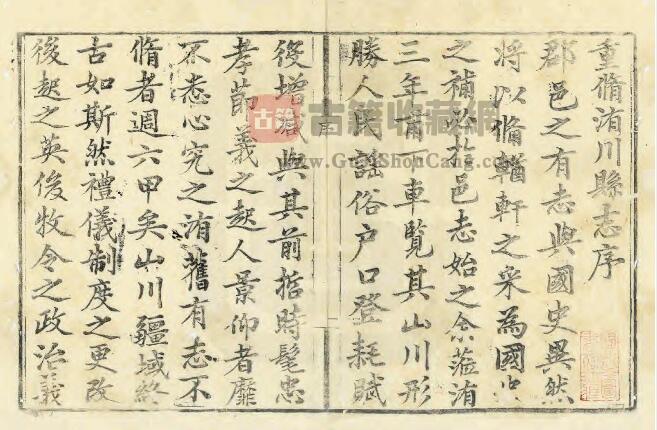 重脩洧川縣志序
郡邑之有志與國史異然
將以脩輶軒之采為國史
之邑志始之余蒞洧
三年甫下車覽其山川形
勝人民謠俗户口登耗賦
役增減與其前哲時髦忠
孝節義之起人景仰者靡
不悉心究之洧舊有志不
脩者週六甲矣山川疆域終
古如斯然禮儀制度之更改
後起之英俊牧令之政治義
古籍
古籍收藏網